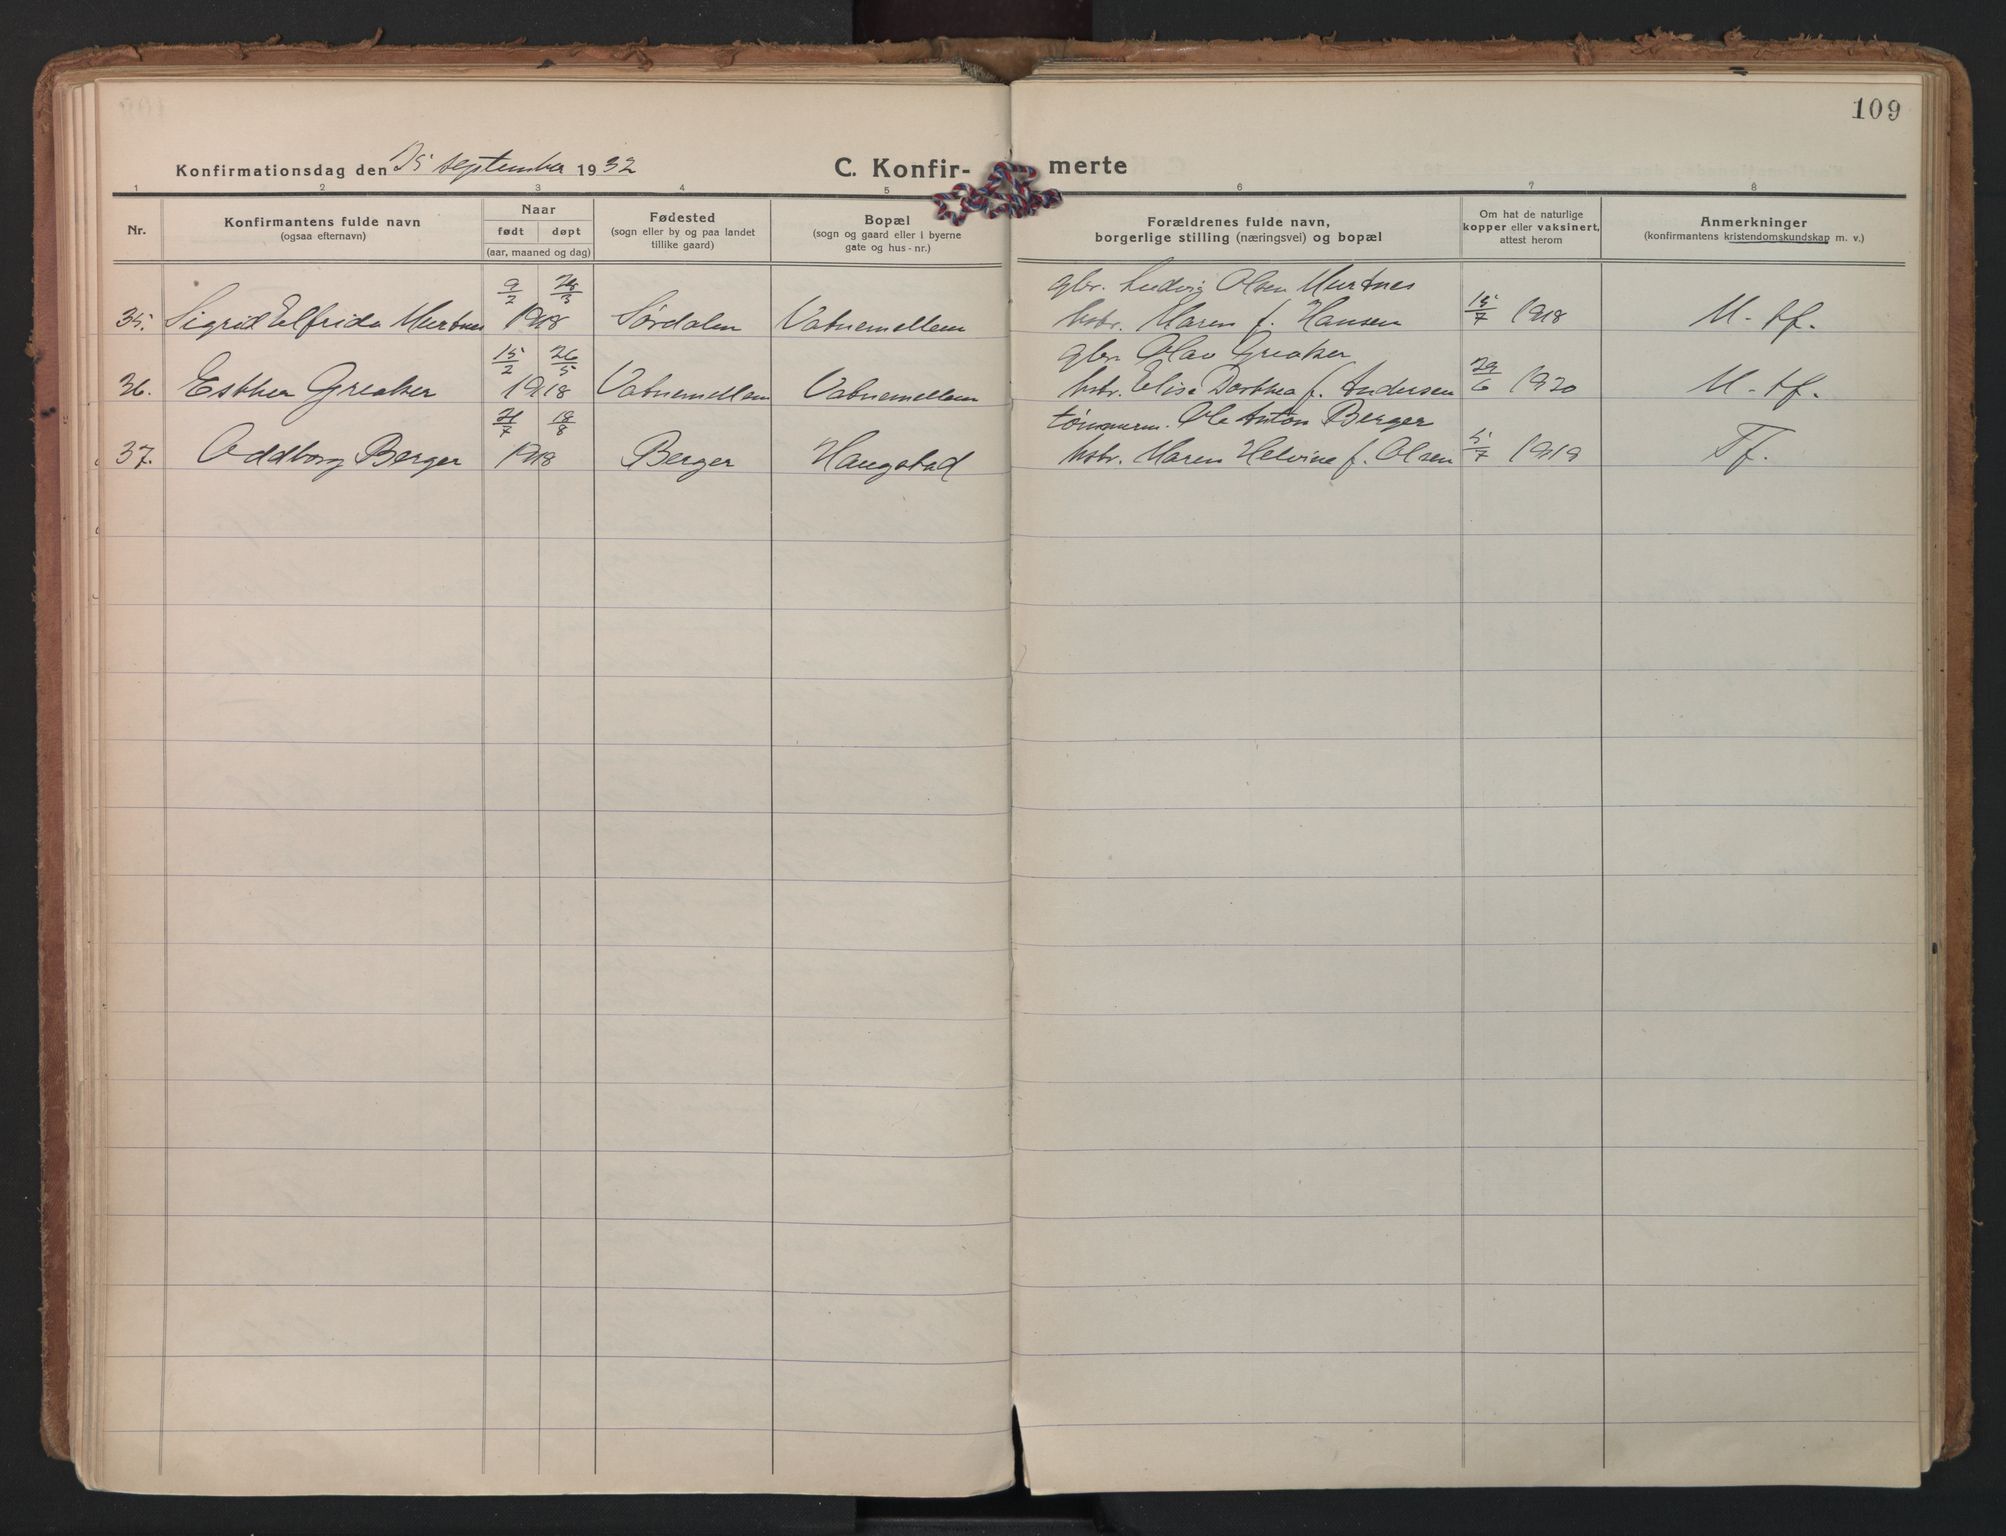 109
Konfirmationsdag den 25 september 1932
C. Konfir-merte
1 2 3 4 5 6 7 8
Nr.
Konfirmantens fulde navn
(ogsaa efternavn)
Naar
født døpt
(aar, maaned og dag)
Fødested
(sogn eller by og paa landet
tillike gaard)
Bopæl
(sogn og gaard eller i byerne
gate og hus-nr.)
Forældrenes fulde navn,
borgerlige stilling (næringsvei) og bopæl
Om hat de naturlige
kopper eller vaksinert,
attest herom
Anmerkninger
(konfirmantens kristendomskundskap m. v.)
9/2 /3 gbr. Ludvig Olsen Murtnes
35. Sigrid Elfrida Murtnes 1918 Sørdalen Vatnemellem hstr. Maren f. Hansen 15/7 1918 M-tf.
15/2 26/5 gbr. Olav Greaker
36. Esther Greaker 1918 Vatnemellem Vatnemellem hstr. Elise Dorthea f. Andersen 29/6 1920 M-tf.
/7 18/8 tømmerm. Ole Anton Berger
37. Oddborg Berger 1918 Berger Haugstad hstr. Maren Helvine f. Olsen 5/7 1919 Tf.